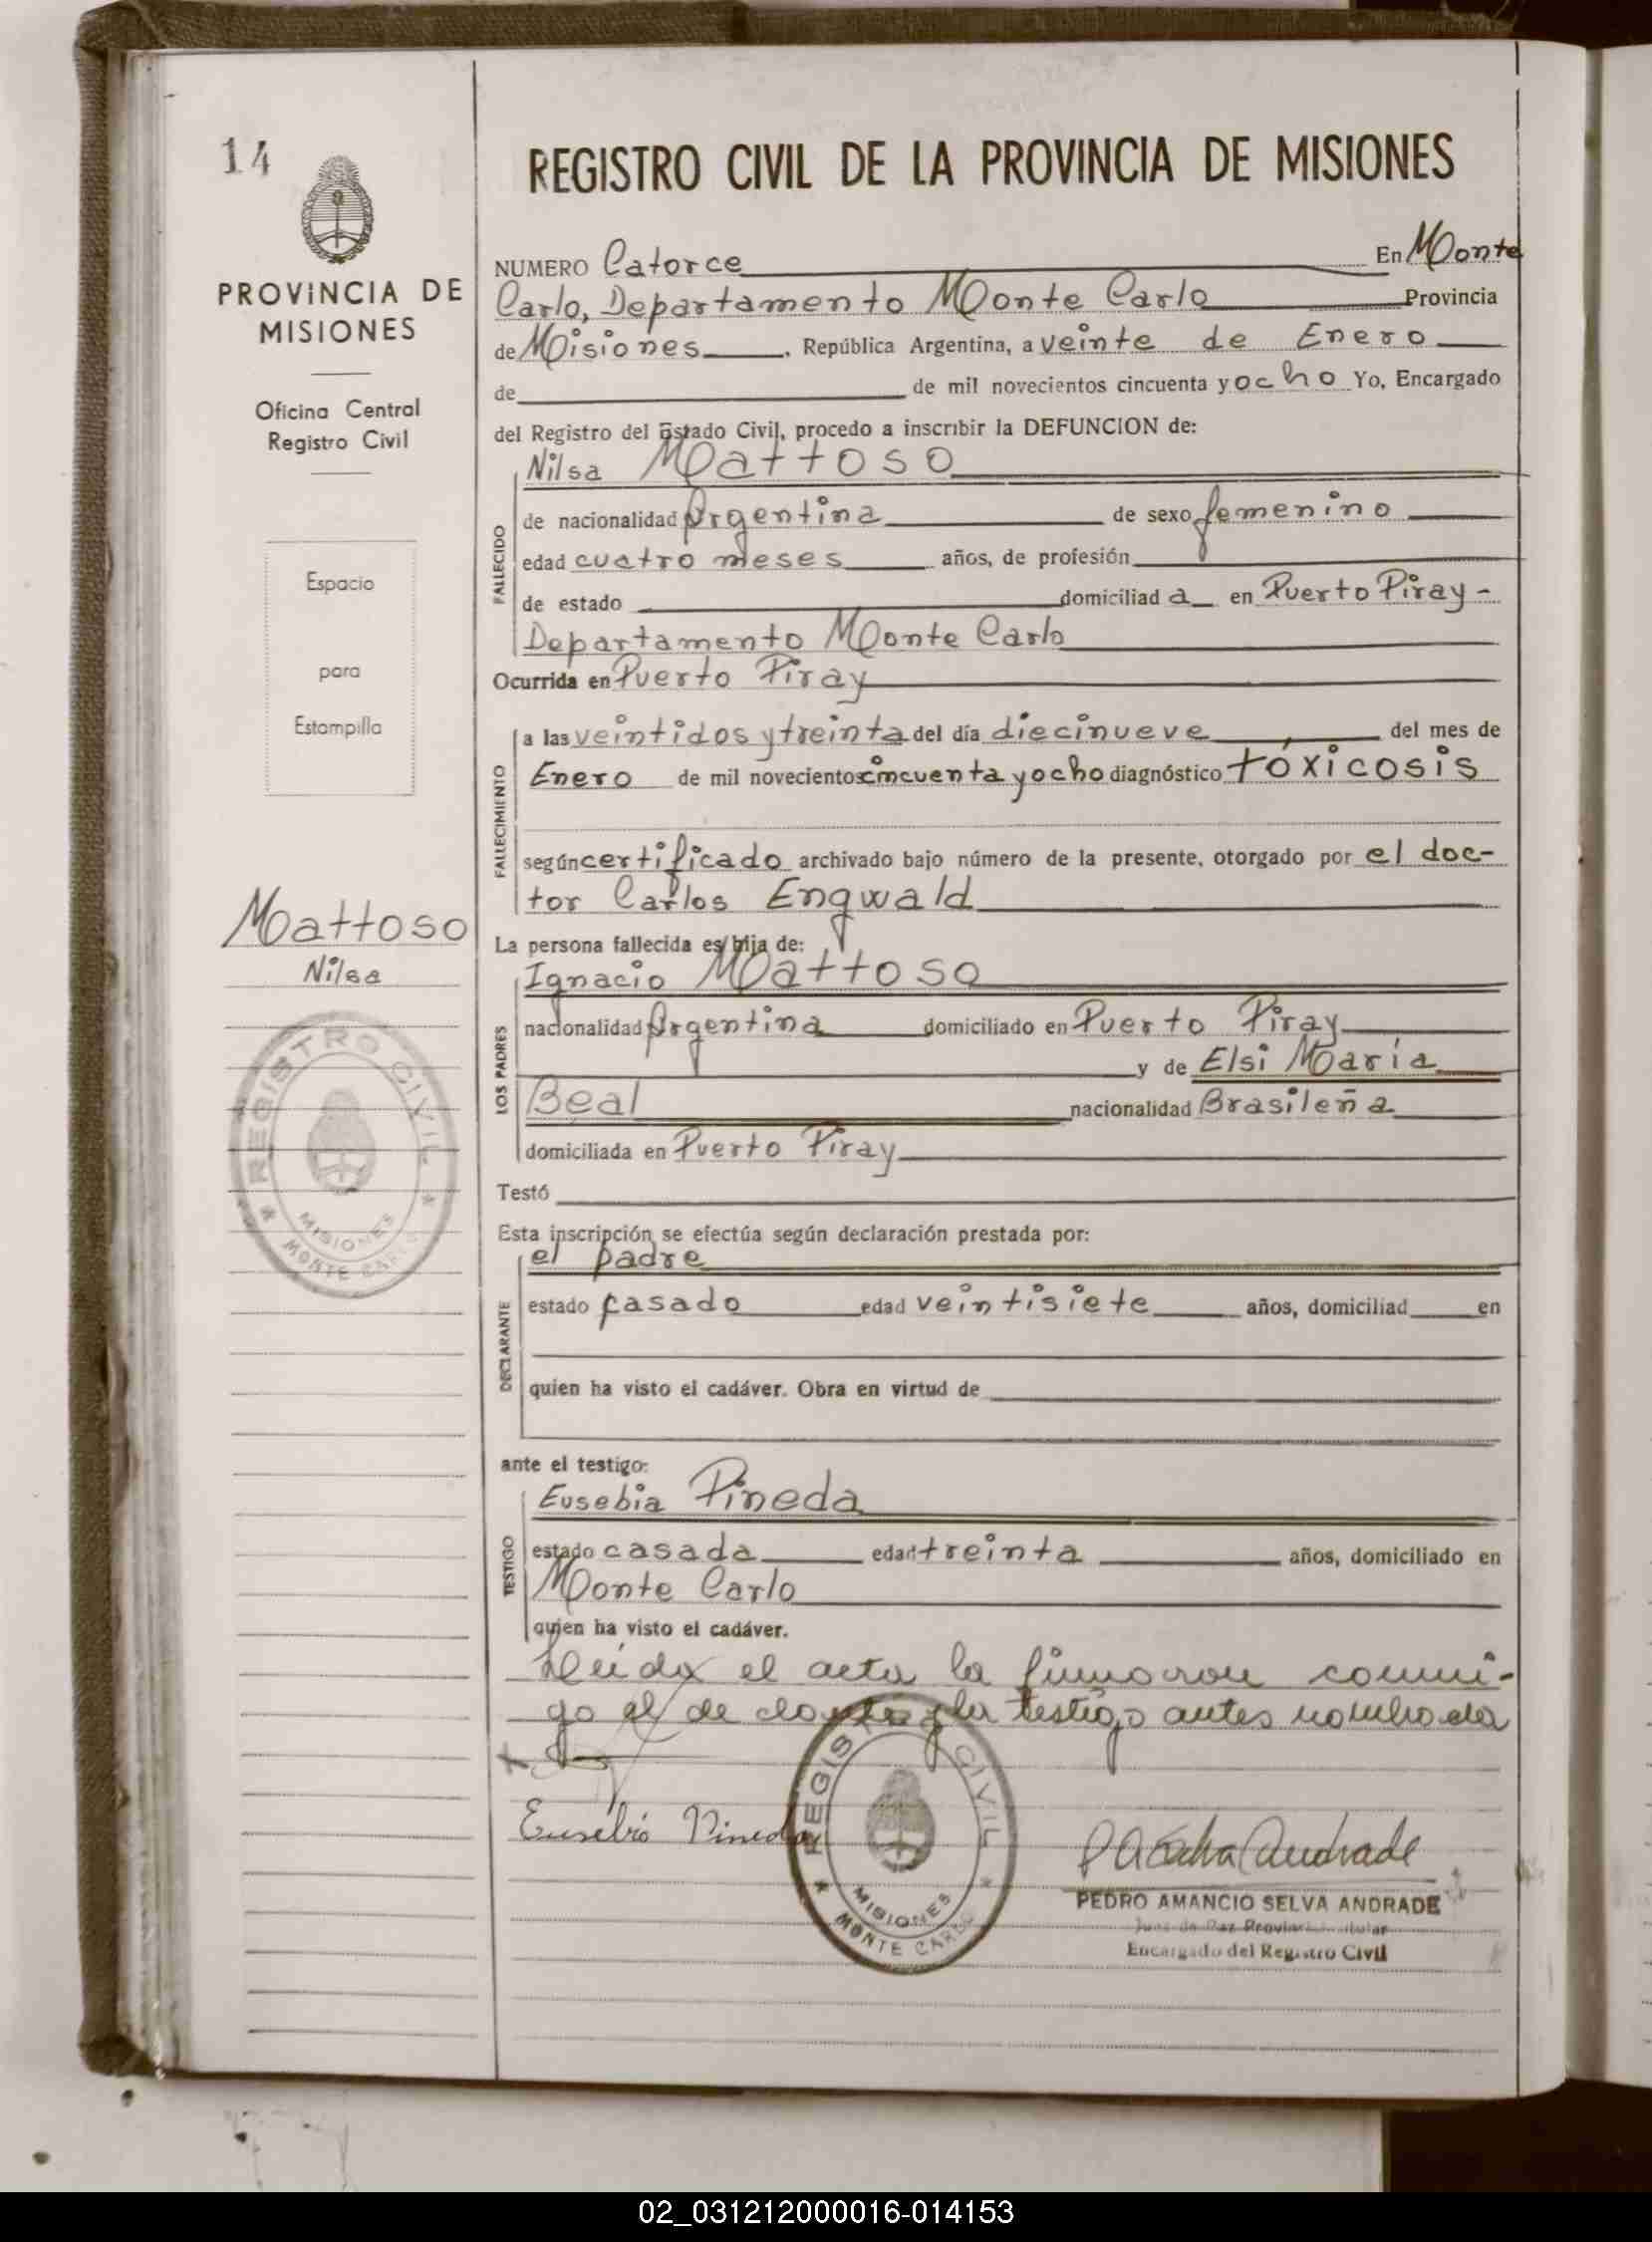 14
PROVINCIA DE
MISIONES
Oficina Central
Registro Civil
Espacio
para
Estampilla
Mattoso
Nilsa
REGISTRO CIVIL
MISIONES
MONTE CARLO
REGISTRO CIVIL DE LA PROVINCIA DE MISIONES
NUMERO Catorce En Monte
Carlo, Departamento Monte Carlo Provincia
de Misiones, República Argentina, a veinte de Enero
de de mil novecientos cincuenta y ocho Yo, Encargado
del Registro del Estado Civil, procedo a inscribir la DEFUNCION de:
Nilsa Mattoso
FALLECIDO
de nacionalidad Argentina de sexo femenino
edad cuatro meses años, de profesión
de estado domiciliad a en Puerto Piray-
Departamento Monte Carlo
Ocurrida en Puerto Piray
FALLECIMIENTO
a las veintidos y treinta del día diecinueve del mes de
Enero de mil novecientos cincuenta y ocho diagnóstico tóxicosis
según certificado archivado bajo número de la presente, otorgado por el doc-
tor Carlos Engwald
La persona fallecida es hija de:
LOS PADRES
Ignacio Mattoso
nacionalidad Argentina domiciliado en Puerto Piray
y de Elsi María
Beal nacionalidad Brasileña
domiciliada en Puerto Piray
Testó
Esta inscripción se efectúa según declaración prestada por:
DECLARANTE
el padre
estado casado edad veintisiete años, domiciliad en
quien ha visto el cadáver. Obra en virtud de
ante el testigo:
TESTIGO
Eusebia Pineda
estado casada edad treinta años, domiciliado en
Monte Carlo
quien ha visto el cadáver.
Leída el acta la firmaron conmi-
go el y la testigo antes nombrada
Eusebio Pineda
REGISTRO CIVIL
MISIONES
MONTE CARLO
PEDRO AMANCIO SELVA ANDRADE
Juez de Paz
Encargado del Registro Civil
02_031212000016-014153